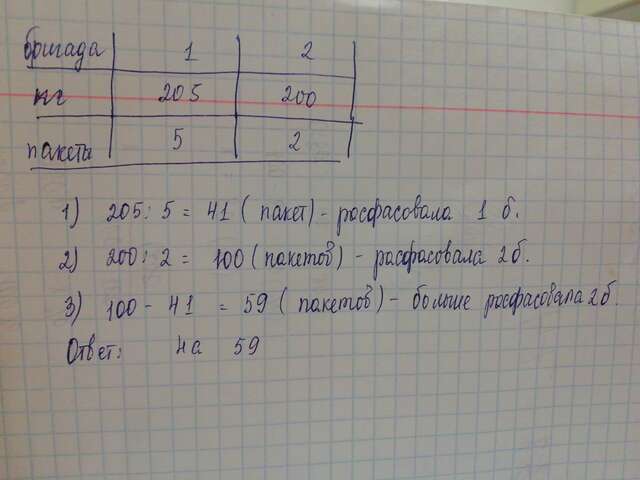 бригада 1 2
кг 205 200
пакеты 5 2
1) 205 : 5 = 41 ( пакет) - росфасовала 1 б.
2) 200 : 2 = 100 ( пакетов) - расфасовала 2 б.
3) 100 - 41 = 59 ( пакетов) - больше росфасовала 2 б.
Ответ: на 59